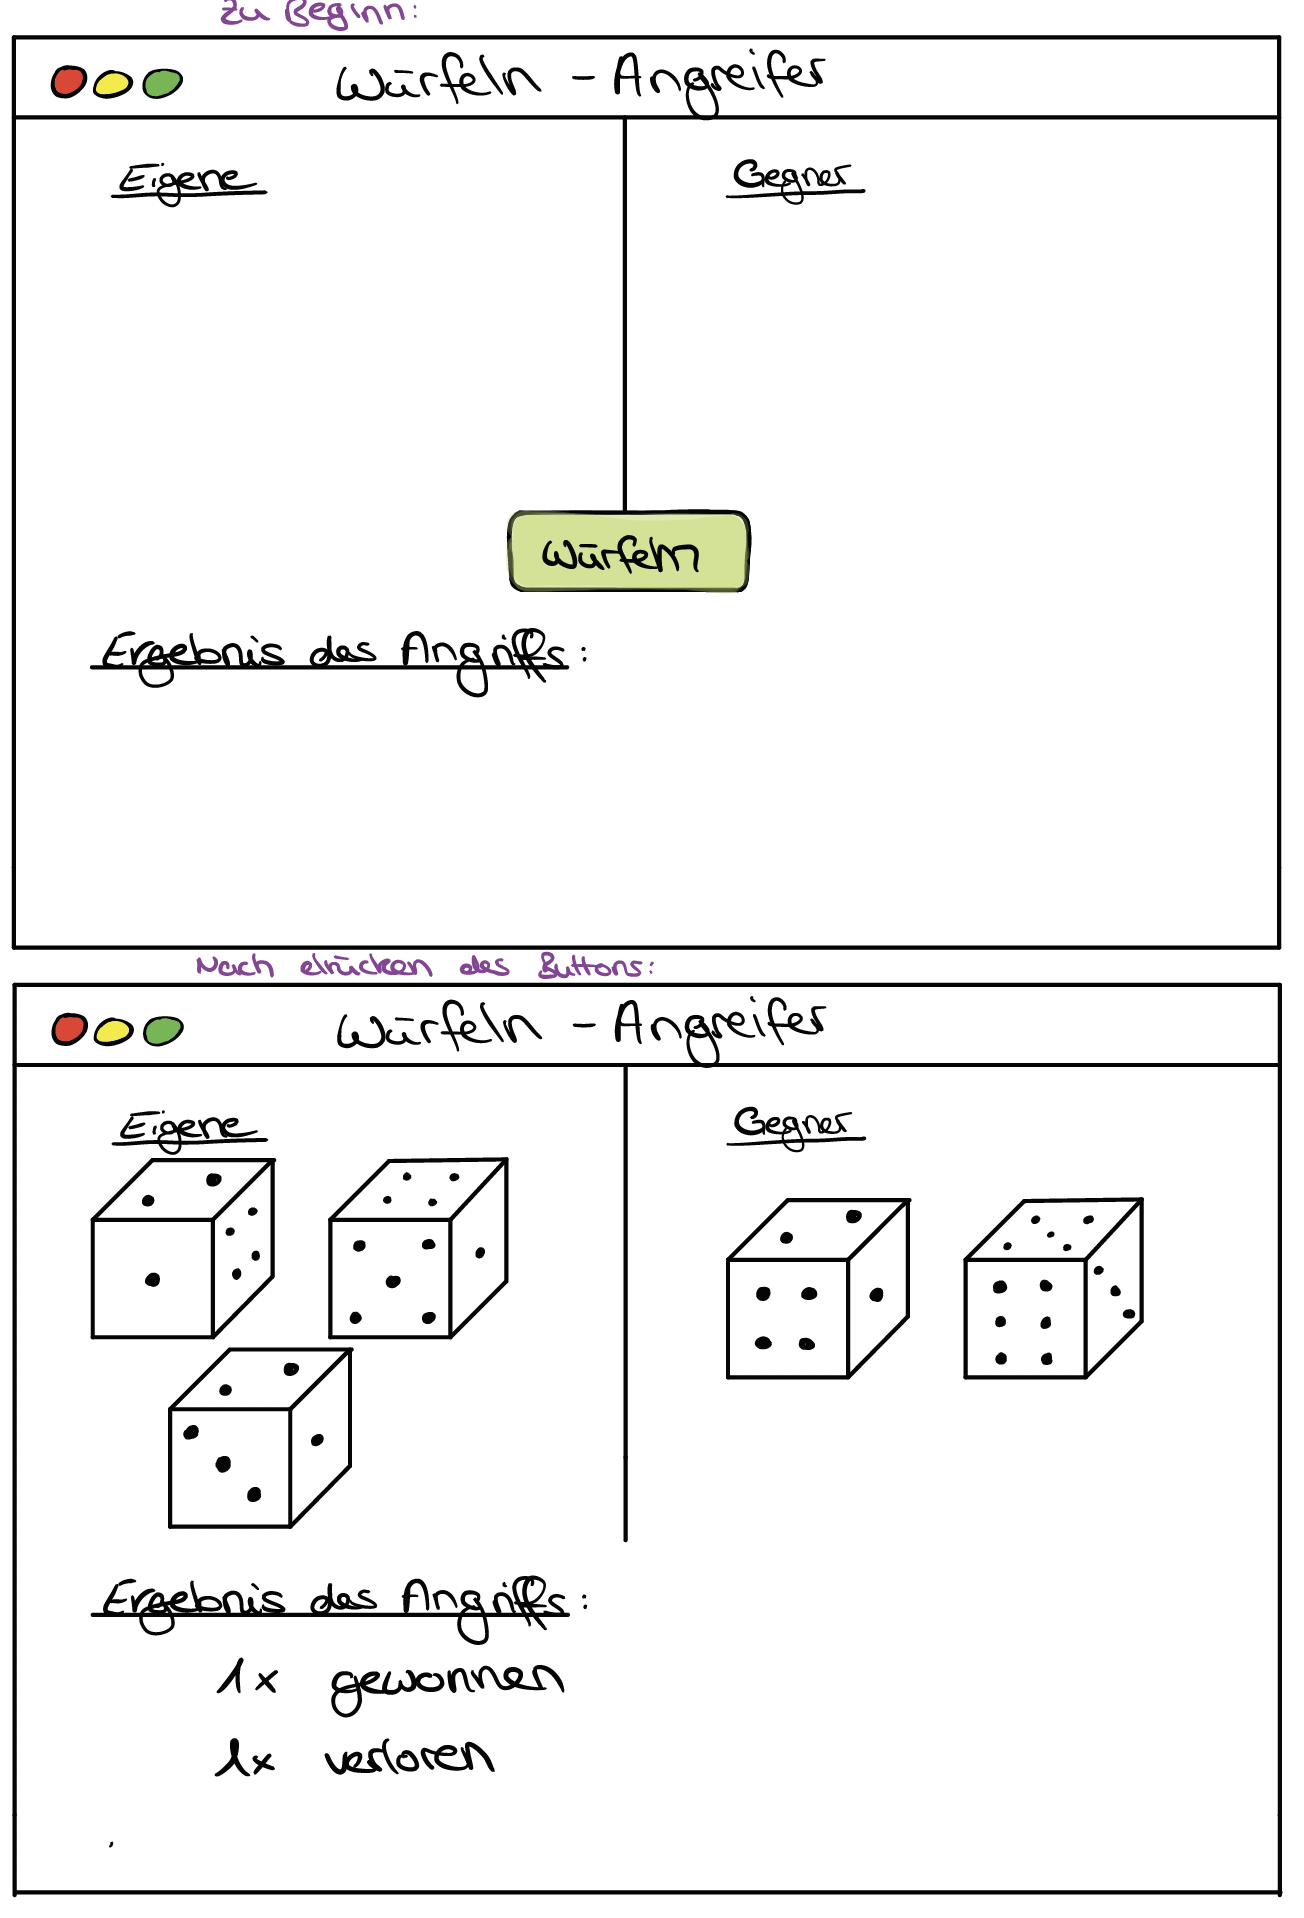 Zu Beginn:
Würfeln - Angreifer
Eigene
Gegner
Würfeln
Ergebnis des Angriffs:
Nach drücken des Buttons:
Würfeln - Angreifer
Eigene
Gegner
Ergebnis des Angriffs:
1x gewonnen
1x verloren